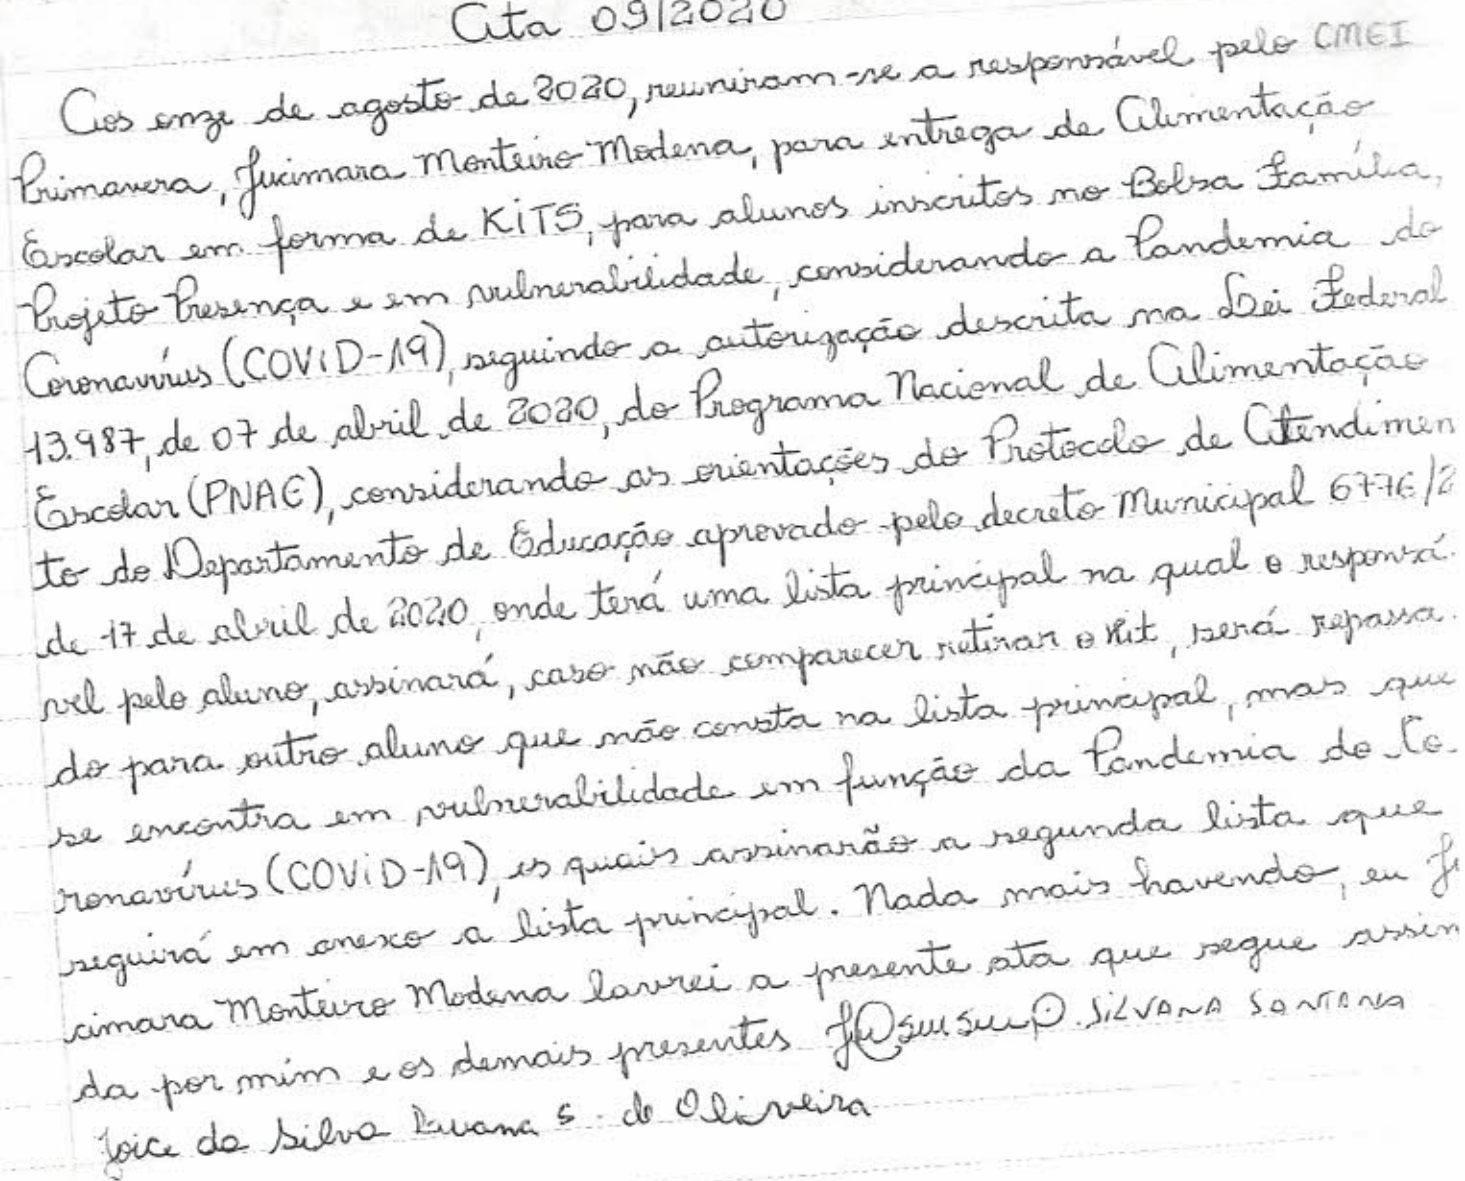 Ata 09/2020
Aos onze de agosto de 2020, reuniram-se a responsável pelo CMEI
Primavera, Jucimara Monteiro Modena, para entrega de Alimentação
Escolar em forma de KITS, para alunos inscritos no Bolsa Família,
Projeto Presença e em vulnerabilidade, considerando a Pandemia do
Coronavírus (COVID-19), seguindo a autorização descrita na Lei Federal
13.987, de 07 de abril de 2020, do Programa Nacional de Alimentação
Escolar (PNAE), considerando as orientações do Protocolo de Atendimen
to do Departamento de Educação aprovado pelo decreto Municipal 6776/2
de 17 de abril de 2020, onde terá uma lista principal na qual o responsá-
vel pelo aluno, assinará, caso não comparecer retirar o kit, será repassa-
do para outro aluno que não consta na lista principal, mas que
se encontra em vulnerabilidade em função da Pandemia do Co-
ronavírus (COVID-19), os quais assinarão a segunda lista que
seguirá em anexo a lista principal. Nada mais havendo, eu Ju
cimara Monteiro Modena lavrei a presente ata que segue assin
da por mim e os demais presentes SILVANA SANTANA
Joice da Silva Luana S. de Oliveira